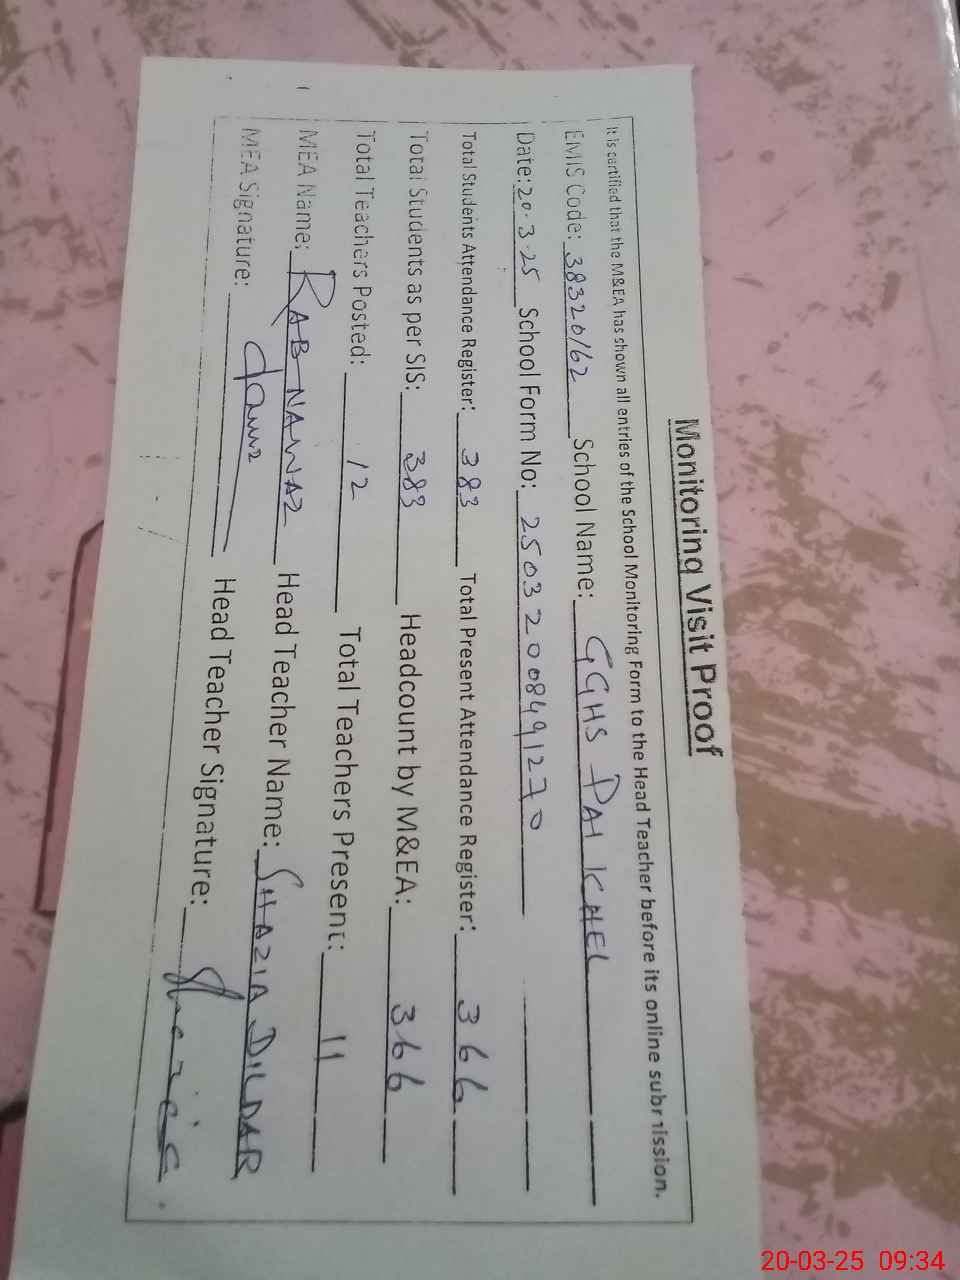 Monitoring Visit Proof
It is certified that the M&EA has shown all entries of the School Monitoring Form to the Head Teacher before its online submission.
EMIS Code: 38320162 School Name: GGHS PAI KHEL
Date: 20.3.25 School Form No: 25032008491270
Total Students Attendance Register: 383 Total Present Attendance Register: 366
Total Students as per SIS: 383 Headcount by M&EA: 366
Total Teachers Posted: 12 Total Teachers Present: 11
MEA Name: RAB NAWAZ Head Teacher Name: SHAZIA DILDAR
MEA Signature: Head Teacher Signature: Shazia
20-03-25 09:34